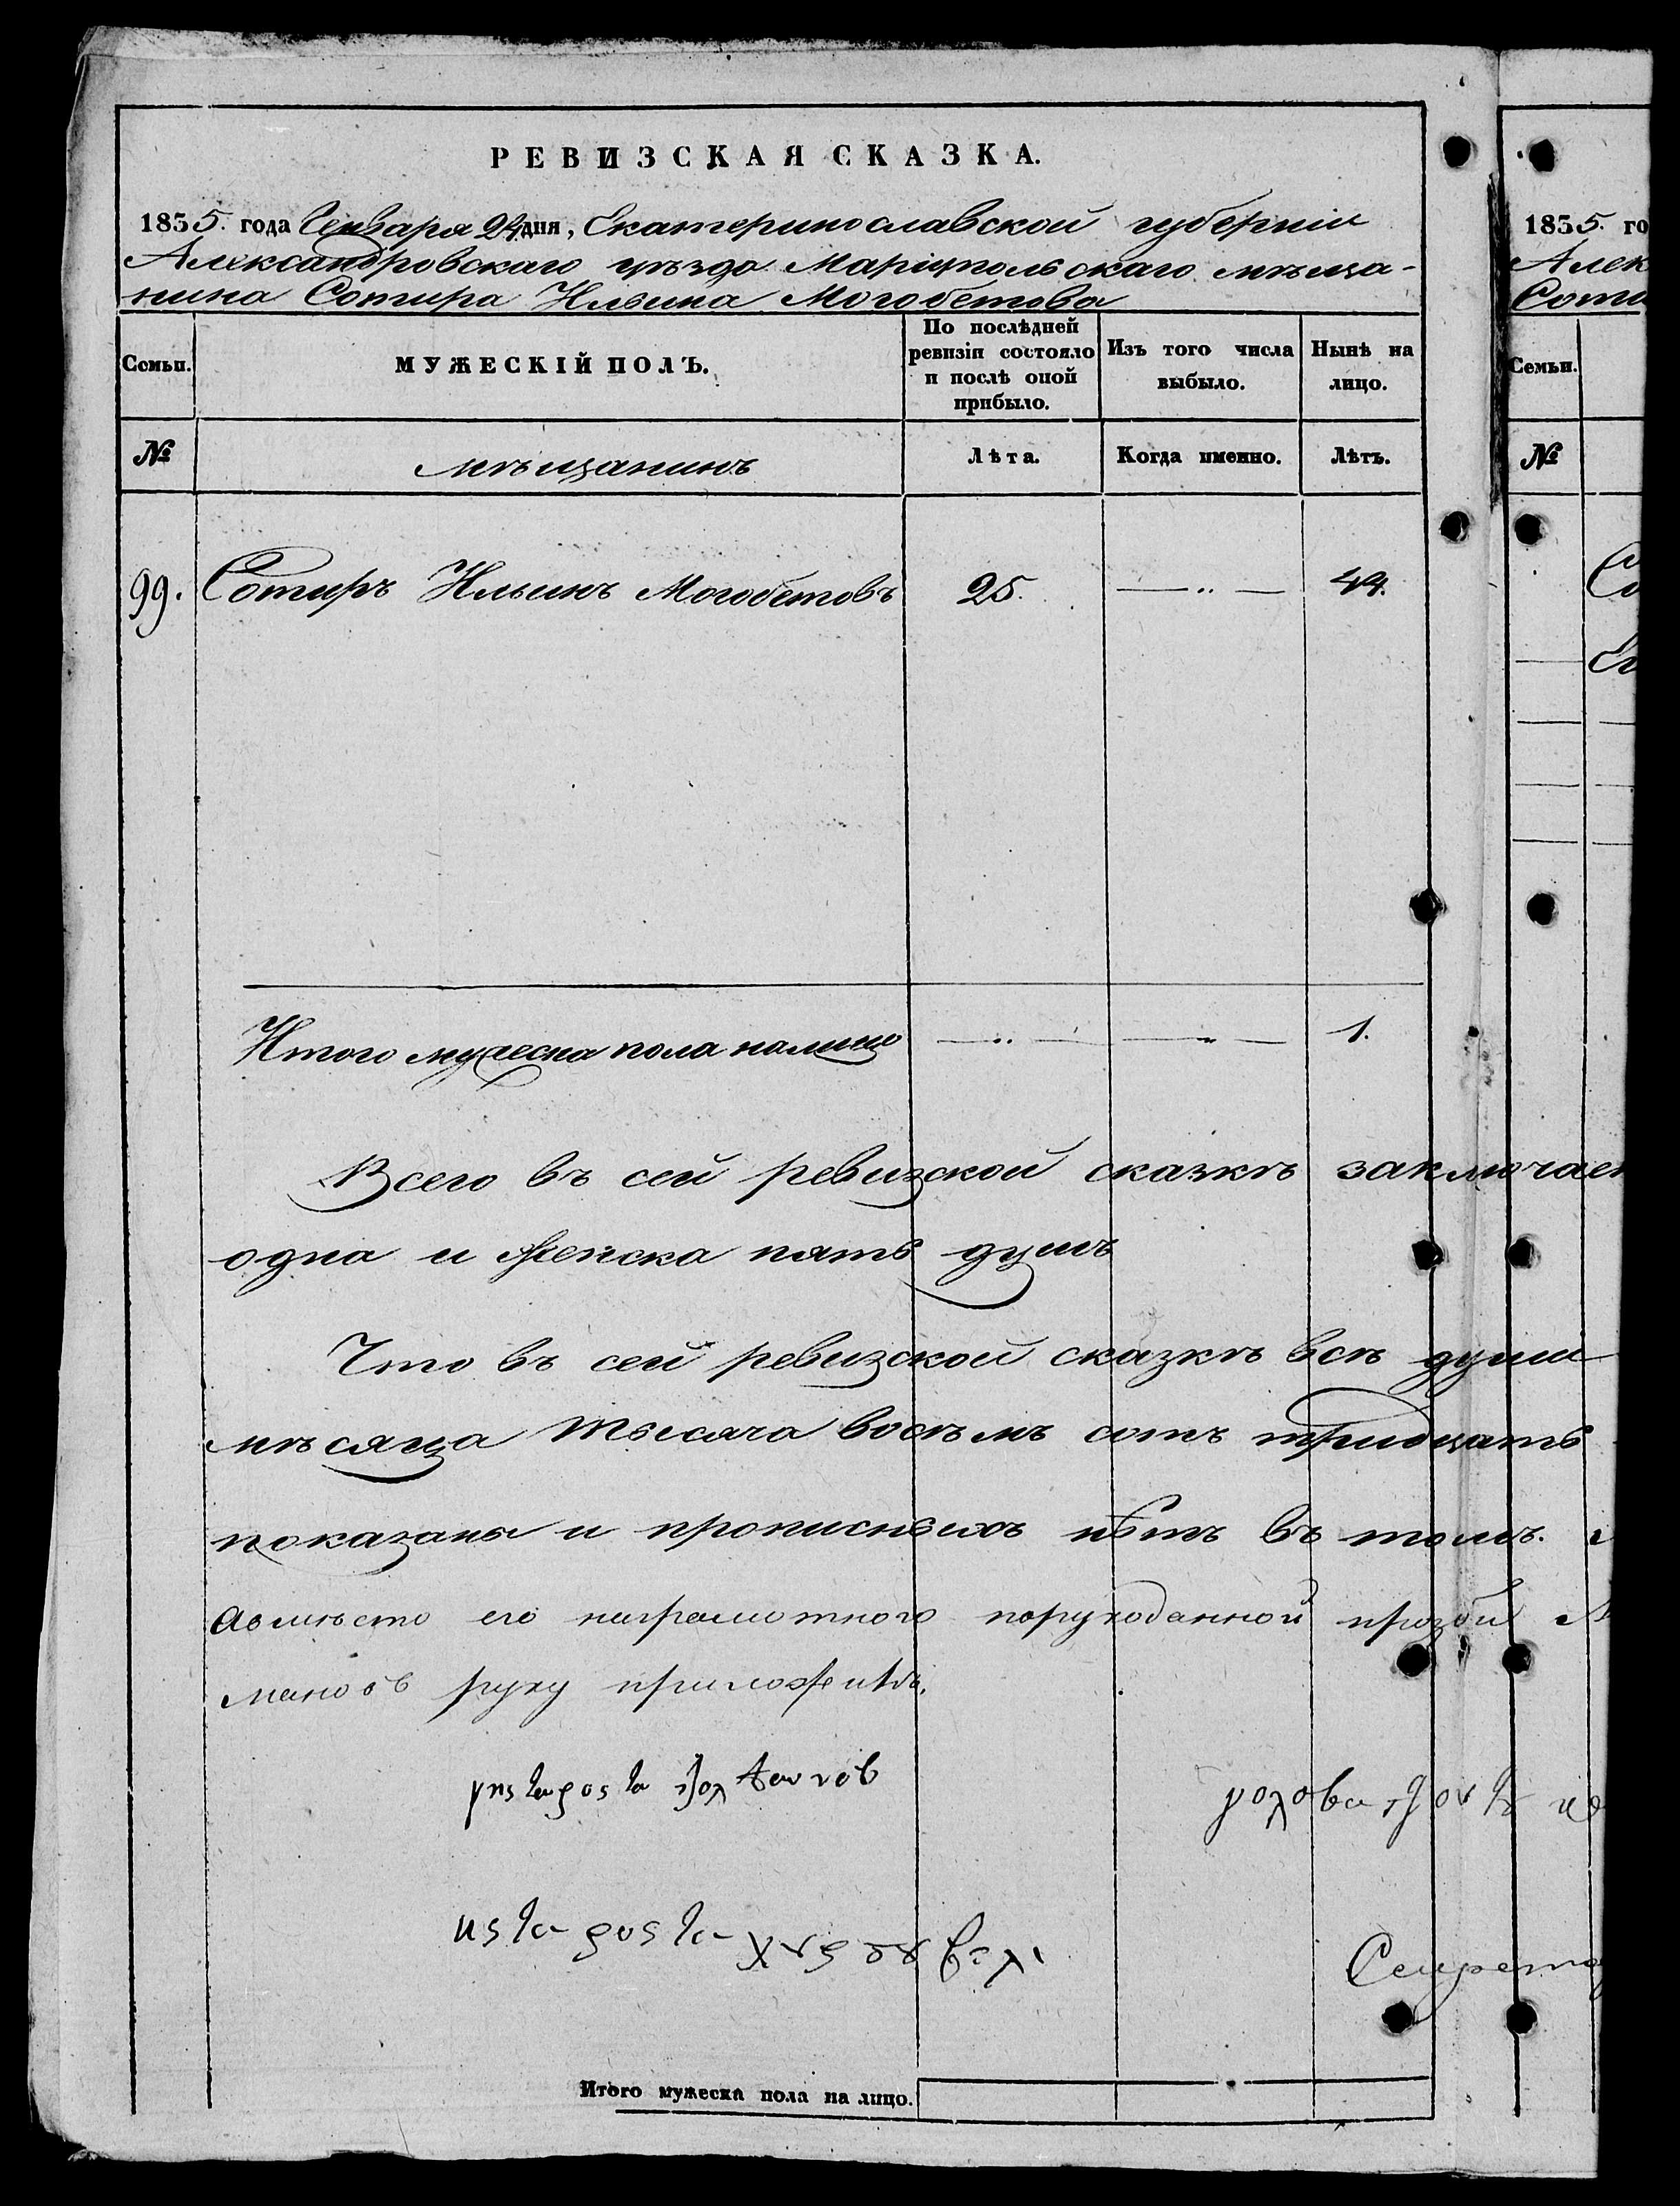 РЕВИЗСКАЯ СКАЗКА.
1835. года Генваря 24 дня, Екатеринославской губерніи
Александровскаго уѣзда Маріупольскаго мѣща-
нина Сотира Ильина Могобетова
Семьи.
МУЖЕСКІЙ ПОЛЪ.
По послѣдней ревизіи состояло и послѣ оной прибыло.
Изъ того числа выбыло.
Нынѣ на лицо.
№
мѣщанинъ
Лѣта.
Когда именно.
Лѣтъ.
99. Сотиръ Ильинъ Могобетовъ 25. — „ — 44.
Итого мужеска пола налицо — „ — — „ — 1.
Всего въ сей ревизской сказкѣ заключает
одна и женска пять душъ
Что въ сей ревизской сказкѣ всѣ души
мѣсяца тысяча восемъ сотъ тридцать
показаны и прописныхъ нѣтъ въ томъ.
авмѣсто его награмотного порукоданной прозби
мановъ руку приложилъ.
Секретар
Итого мужеска пола на лицо.
1835. го
Алек
Соти
Семьи.
№